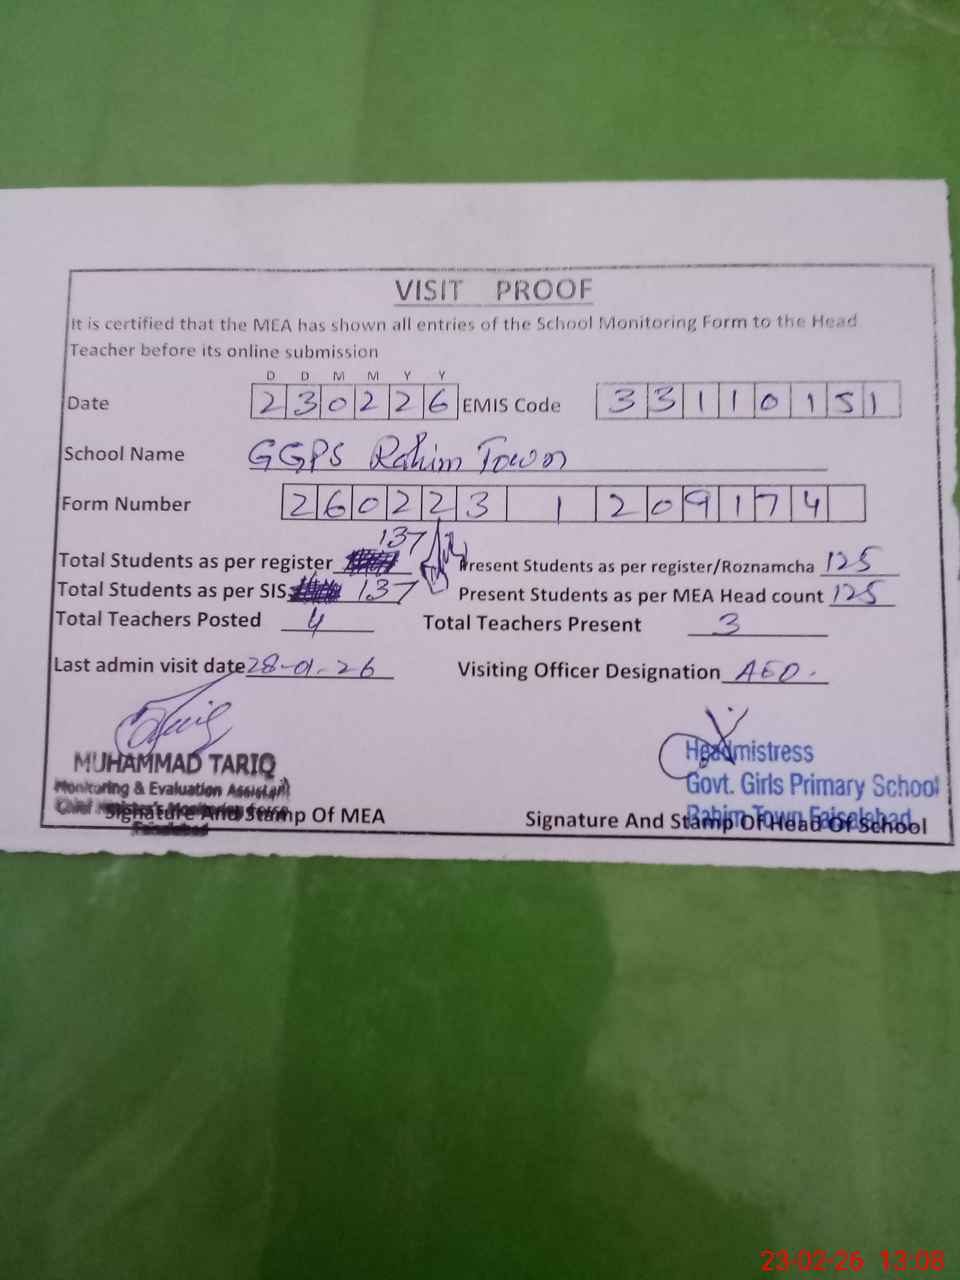 VISIT PROOF
It is certified that the MEA has shown all entries of the School Monitoring Form to the Head
Teacher before its online submission
D D M M Y Y
Date 230226 EMIS Code 33110151
School Name GGPS Rahim Town
Form Number 260223 1 209174
137
Total Students as per register Present Students as per register/Roznamcha 125
Total Students as per SIS 137 Present Students as per MEA Head count 125
Total Teachers Posted 4 Total Teachers Present 3
Last admin visit date 28-01-26 Visiting Officer Designation AEO.
MUHAMMAD TARIQ
Monitoring & Evaluation Assistant
Chief Minister's Monitoring Force
Faisalabad
Signature And Stamp Of MEA
Headmistress
Govt. Girls Primary School
Rahim Town Faiselabad
Signature And Stamp Of Head Of School
23-02-26 13:08